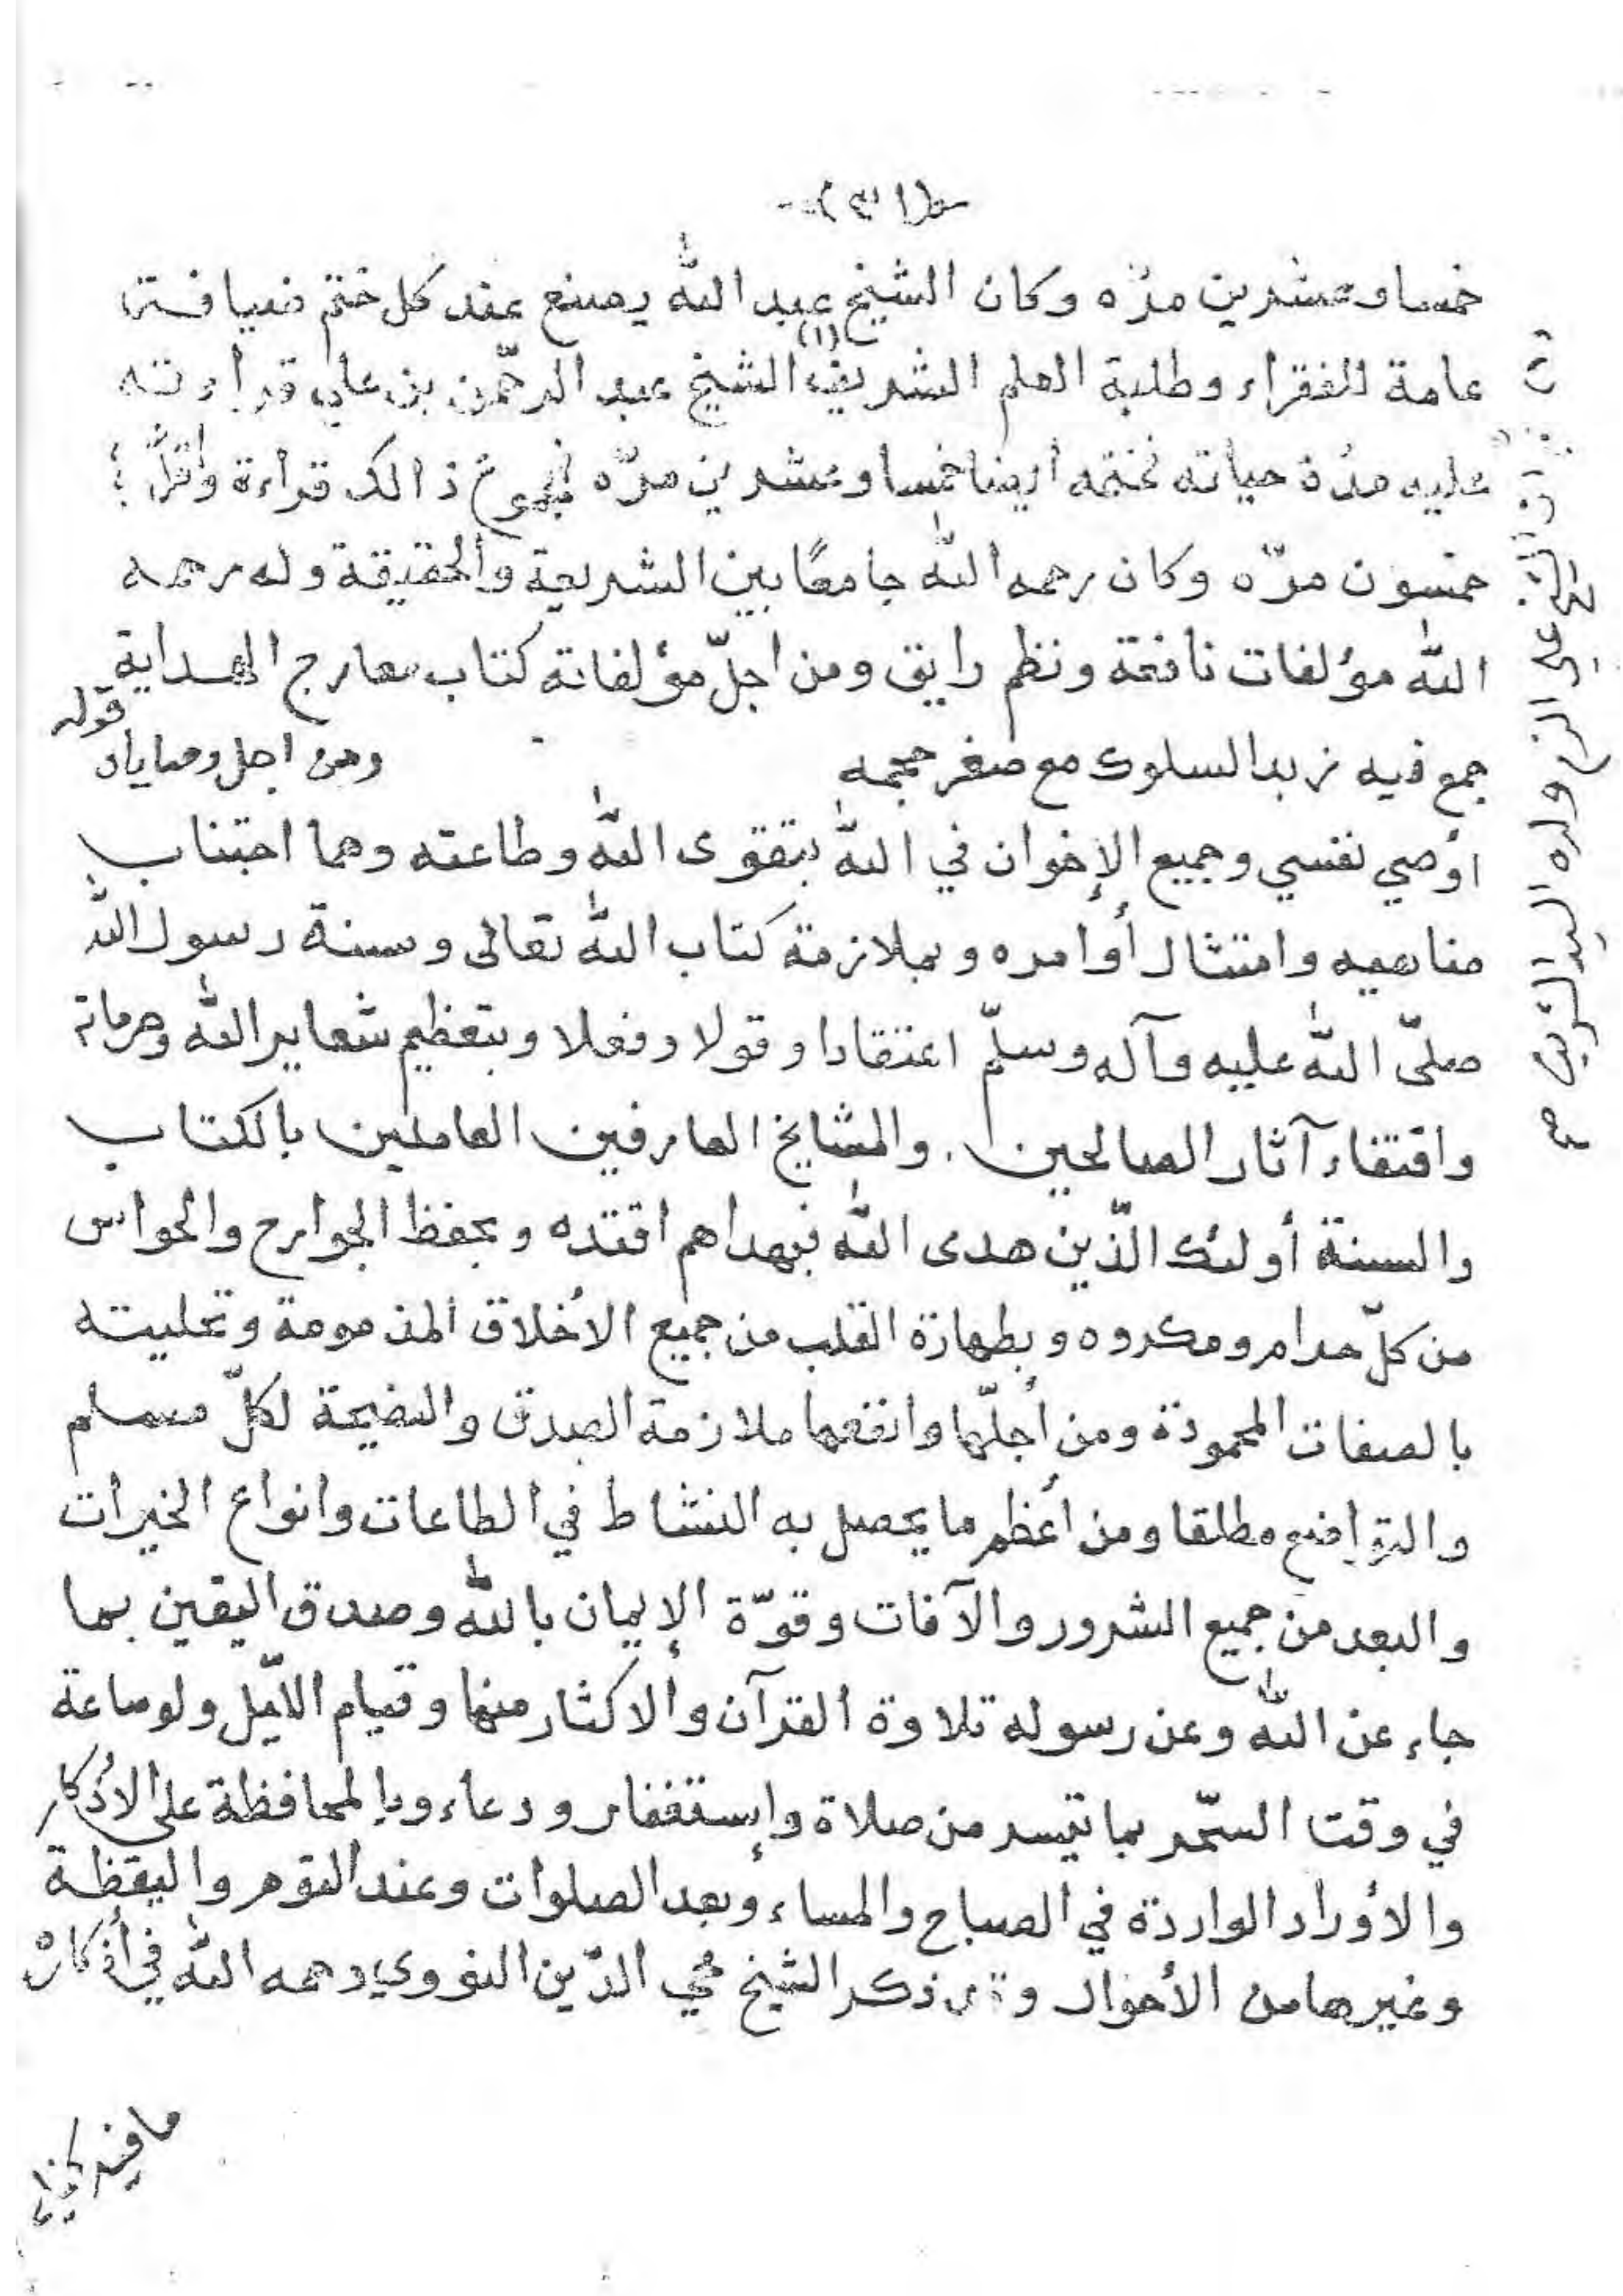 خمسا وعشرين مرّه وكان الشيخ عبد الله يصنع عند كل ختم ضيافة
عامة للفقراء وطلبة العلم الشريف (١) الشيخ عبد الرحمن بن علي قراءته
عليه مدّة حياته نختمه ايضا خمسا وعشرين مرّه فمجموع ذالك قراءة
خمسون مرّه وكان رحمه الله جامعًا بين الشريعة والحقيقة وله رحمه
الله مؤلفات نافعة ونظم رايق ومن اجلّ مؤلفاته كتاب معارج الهداية
جمع فيه زبد السلوك مع صغر حجمه ومن اجل وصاياه قوله
اوصي نفسي وجميع الإخوان في الله بتقوى الله وطاعته وهما اجتناب
مناهيه وامتثال أوامره وبملازمة كتاب الله تعالى وسنة رسول الله
صلّى الله عليه وآله وسلّم اعتقادا وقولا وفعلا وبتعظيم شعاير الله وحرماته
واقتفاء آثار الصالحين. والمشايخ العارفين العاملين بالكتاب
والسنة أولئك الّذين هدى الله فبهداهم اقتده وبحفظ الجوارح والحواس
من كلّ حرام ومكروه وبطهارة القلب من جميع الأخلاق المذمومة وتحليته
بالصفات المحمودة ومن أجلّها وانفعها ملازمة الصدق والنصيحة لكلّ مسلم
والتواضع مطلقا ومن أعظم ما يحصل به النشاط في الطاعات وانواع الخيرات
والبعد من جميع الشرور والآفات وقوّة الإيمان بالله وصدق اليقين بما
جاء عن الله وعن رسوله تلاوة القرآن والاكثار منها وقيام اللّيل ولو ساعة
في وقت السّحر بما تيسر من صلاة وإستغفار ودعاء وبالمحافظة على الأذكار
والأوراد الواردة في الصباح والمساء وبعد الصلوات وعند النوم واليقظة
وغيرها من الأحوال وقد ذكر الشيخ محي الدّين النووي رحمه الله في أذكاره
ما فيه
ولده السيد الشريف